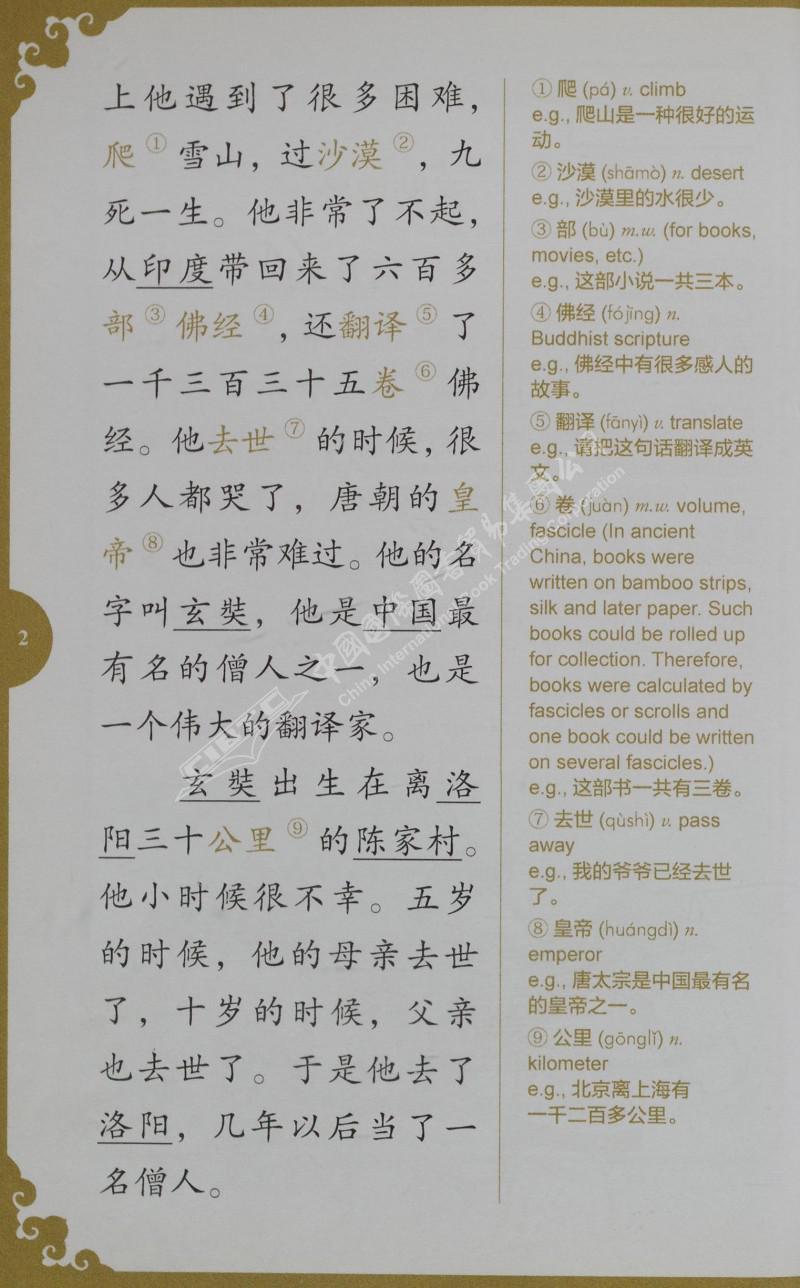 上他遇到了很多困难，
爬①雪山，过沙漠②，九
死一生。他非常了不起，
从印度带回来了六百多
部③佛经④，还翻译⑤了
一千三百三十五卷⑥佛
经。他去世⑦的时候，很
多人都哭了，唐朝的皇
帝⑧也非常难过。他的名
字叫玄奘，他是中国最
有名的僧人之一，也是
一个伟大的翻译家。
玄奘出生在离洛
阳三十公里⑨的陈家村。
他小时候很不幸。五岁
的时候，他的母亲去世
了，十岁的时候，父亲
也去世了。于是他去了
洛阳，几年以后当了一
名僧人。
① 爬 (pá) v. climb
e.g., 爬山是一种很好的运
动。
② 沙漠 (shāmò) n. desert
e.g., 沙漠里的水很少。
③ 部 (bù) m.w. (for books,
movies, etc.)
e.g., 这部小说一共三本。
④ 佛经 (fójīng) n.
Buddhist scripture
e.g., 佛经中有很多感人的
故事。
⑤ 翻译 (fānyì) v. translate
e.g., 请把这句话翻译成英
文。
⑥ 卷 (juàn) m.w. volume,
fascicle (In ancient
China, books were
written on bamboo strips,
silk and later paper. Such
books could be rolled up
for collection. Therefore,
books were calculated by
fascicles or scrolls and
one book could be written
on several fascicles.)
e.g., 这部书一共有三卷。
⑦ 去世 (qùshì) v. pass
away
e.g., 我的爷爷已经去世
了。
⑧ 皇帝 (huángdì) n.
emperor
e.g., 唐太宗是中国最有名
的皇帝之一。
⑨ 公里 (gōnglǐ) n.
kilometer
e.g., 北京离上海有
一千二百多公里。
2
中國國際圖書貿易集團公司
China International Book Trading Corporation